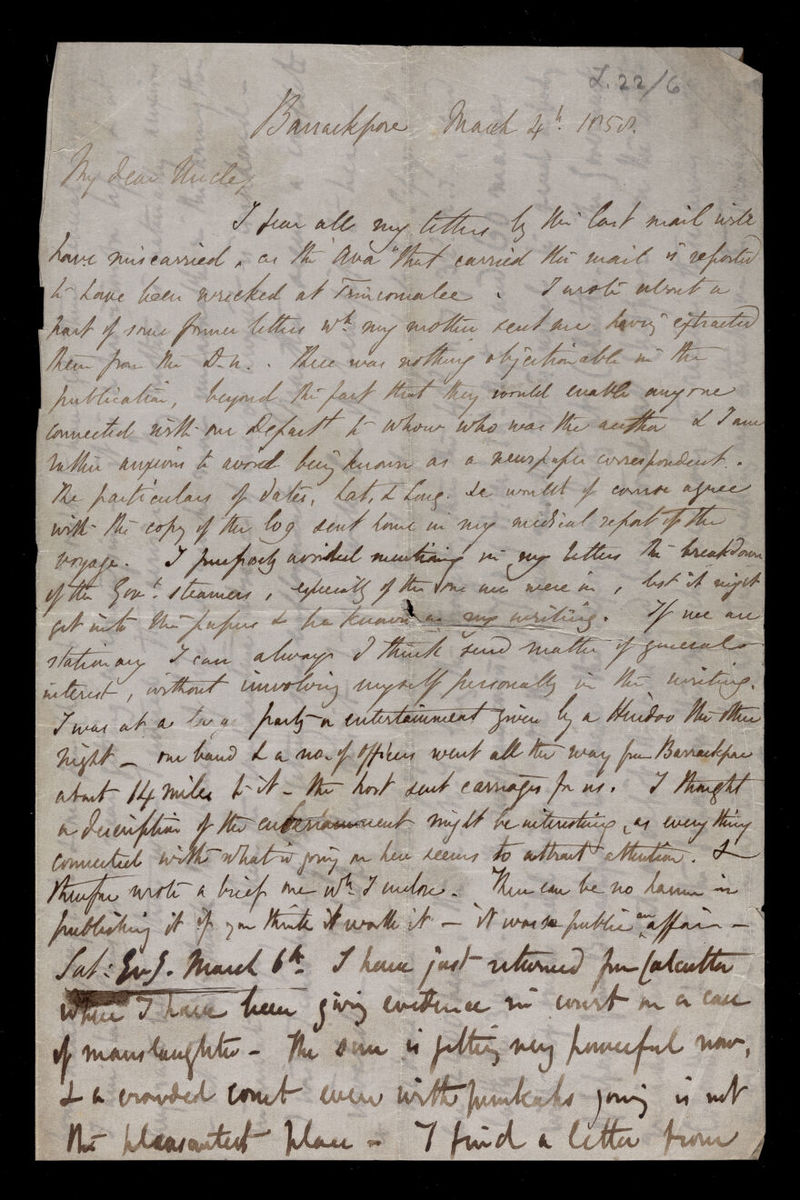 L.22/6
Barrackpore March 4th 1858.
My dear Uncle,
I fear all my letters by the last mail will
have miscarried, as the "Ava" that carried this mail is reported
to have been wrecked at Trincomalee. I wrote about a
part of some former letters wh. my mother sent me having extracted
them from the D.N.. There was nothing objectionable in the
publication, beyond the fact that they would enable anyone
connected with our Departt to know who was the author & I am
rather anxious to avoid being known as a newspaper correspondent.
The particulars of dates, Lat. & Long. &c would of course agree
with the copy of the log sent home in my medical report of the
voyage. I purposely avoided mentioning in my letters the breakdown
of the Govt. steamers, especially of the one we were in, lest it might
get into the papers & be known as my writing. If we are
stationary I can always I think send matter of general
interest, without involving myself personally in the writing.
I was at a large party or entertainment given by a Hindoo the other
night - our band & a no. of officers went all the way from Barrackpore
about 14 miles to it - the host sent carriages for us. I thought
a description of the entertainment might be interesting, as everything
connected with what is going on here seems to attract attention. I
therefore wrote a brief one wh. I enclose. There can be no harm in
publishing it if you think it worth it - it was a public affair -
Sat: Evg. March 6th. I have just returned from Calcutta
where I have been giving evidence in court on a case
of manslaughter - The sun is getting very powerful now,
& a crowded court even with punkahs going is not
the pleasantest place - I find a letter from